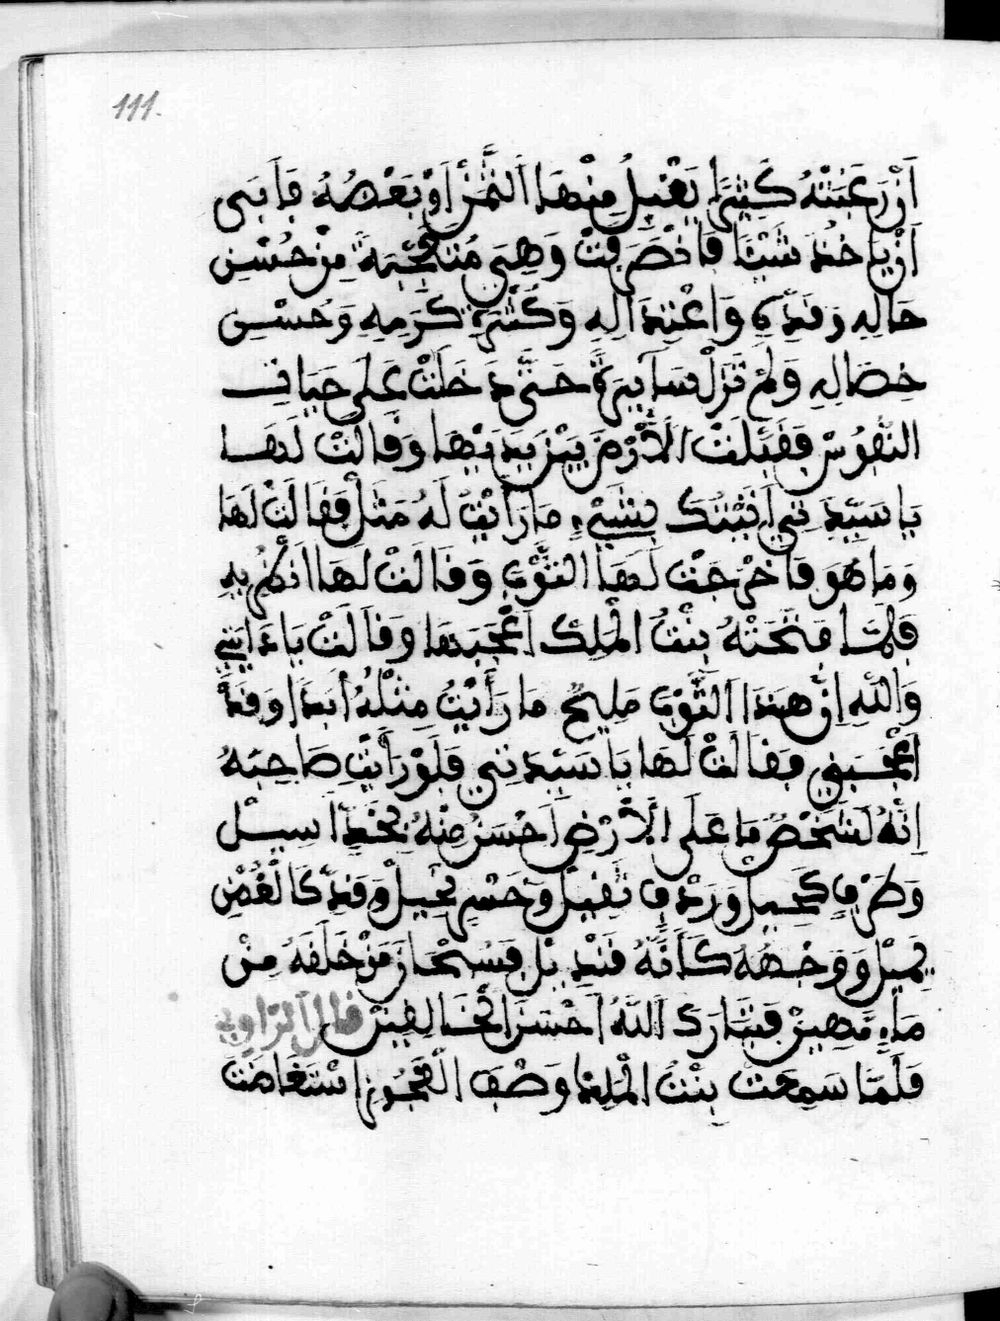 111.
اَنْ رَغِبَتْهُ كَثِيرًا يَقْبِلُ مِنْهَا الثَّمَنْ اَوْ بَعْضُهُ فَاَبَى
اَنْ يَاخُذَ شَيْئًا فَانْصَرَفَتْ وَهِيَ مُتَعَجِّبَةً مِنْ حُسْنِ
حَالِهِ وَقَدِّهِ وَاعْتِدَالِهِ وَكَثْرَةِ كَرَمِهِ وَحُسْنِ
خِصَالِهِ وَلَمْ تَزَلْ سَآيِرَةً حَتَّى دَخَلَتْ عَلَى حَيَاةِ
النُّفُوسْ فَقَبَّلَتْ الْاَرْضَ بَيْنَ يَدَيْهَا وَقَالَتْ لَهَا
يَا سَيِّدَتِي اَتَيْتُكِ بِشَيْءٍ مَا رَاَيْتُ لَهُ مَثَلْ فَقَالَتْ لَهَا
وَمَا هُوَ فَاَخْرَجَتْ لَهَا الثَّوْبَ وَقَالَتْ لَهَا انْظُرِيهِ
فَلَمَّا فَتَحَتْهُ بِنْتُ الْمَلِكْ اَعْجَبَهَا وَقَالَتْ يَا دَايَتِي
وَاللهِ اِنَّ هَذَا الثَّوْبَ مَلِيحٌ مَا رَاَيْتُ مِثْلَهُ اَبَدًا وَقَدْ
اَعْجَبَنِي فَقَالَتْ لَهَا يَا سَيِّدَتِي فَلَوْ رَاَيْتِ صَاحِبَهُ
اِنَّهُ لَشَخْصٌ مَا عَلَى الْاَرْضِ اَحْسَنُ مِنْهُ بِخَدٍّ اَسِيلْ
وَطَرْفٍ كَحِيلْ وَرَدْفٍ ثَقِيلْ وَجِسْمٍ نَحِيلْ وَقَدٍّ كَالْغُصْنِ
يَمِيلْ وَوَجْهُهُ كَاَنَّهُ قَنْدِيلْ فَسُبْحَانَ مَنْ خَلَقَهُ مِنْ
مَاءٍ مَهِينْ فَتَبَارَكَ اللهُ اَحْسَنَ الْخَالِقِينْ قال الراوي
فَلَمَّا سَمِعَتْ بِنْتُ الْمَلِكِ وَصْفَ الْعَجُوزِ اسْتَغَاضَتْ